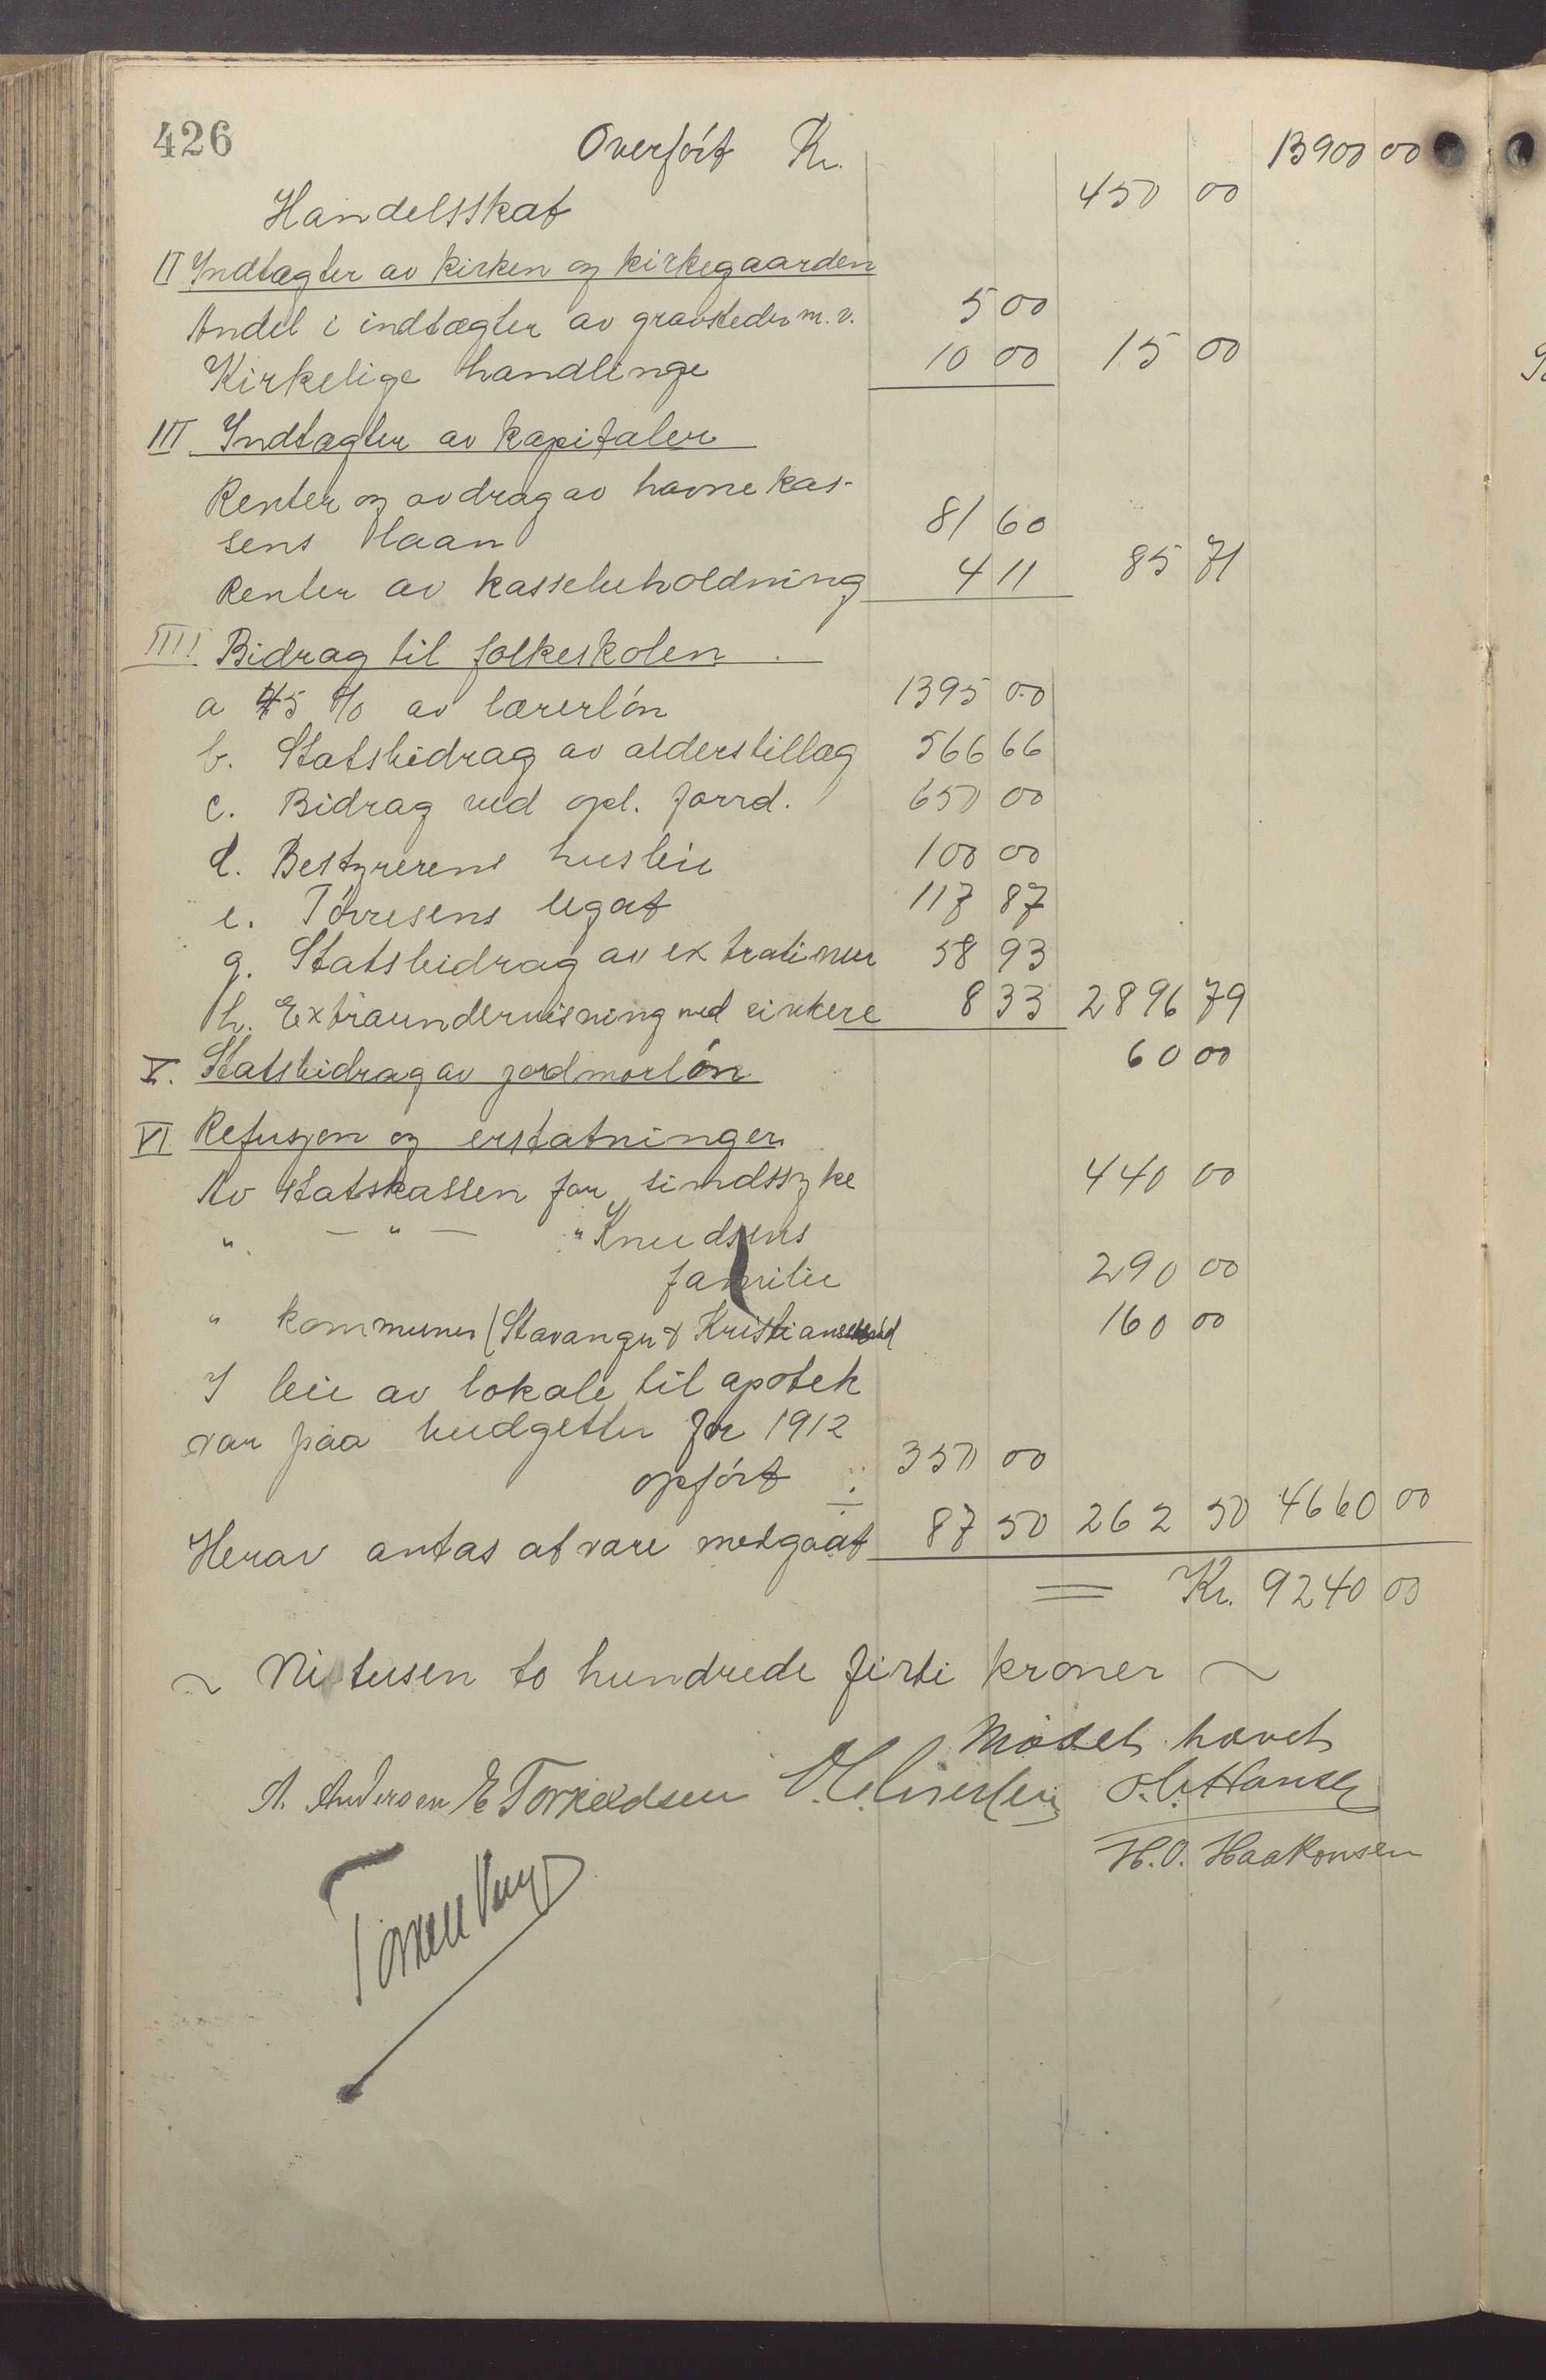 426
Overført Kr. 13900 00
Handelsskat 450 00
II Indtægter av kirken og kirkegaarden
Andel i indtægter av gravsteder m. v. 5 00
Kirkelige handlinge 10 00 15 00
III Indtægter av kapitaler
Renter og avdrag av havnekas-
sens laan 81 60
Renter av kassebeholdning 4 11 85 71
IIII Bidrag til folkeskolen.
a 45 % av lærerløn 1395 00
b. Statsbidrag av alderstillæg 566 66
c. Bidrag ved opl. forrd. 650 00
d. Bestyrerens husleie 100 00
e. Tørresens legat 117 87
g. Statsbidrag av extratimer 58 93
h. Extraundervisning ved sinkere 8 33 2896 79
V. Statsbidrag av jordmorløn 60 00
VI Refusjon og erstatninger
Av statskassen for sindssyke 440 00
" — " — " Knudsens
familie 290 00
" kommuner (Stavanger & Kristianssund 160 00
I leie av lokale til apotek
var paa budgetter for 1912
opført 350 00
Herav antas at være medgaat ÷ 87 50 262 50 4660 00
= Kr. 9240 00
~ Ni tusen to hundrede firti kroner ~
Mødet hævet
A. Andersen E Torkeldsen O. C. Iversen O. C. Hansen
H.O. Haakonsen